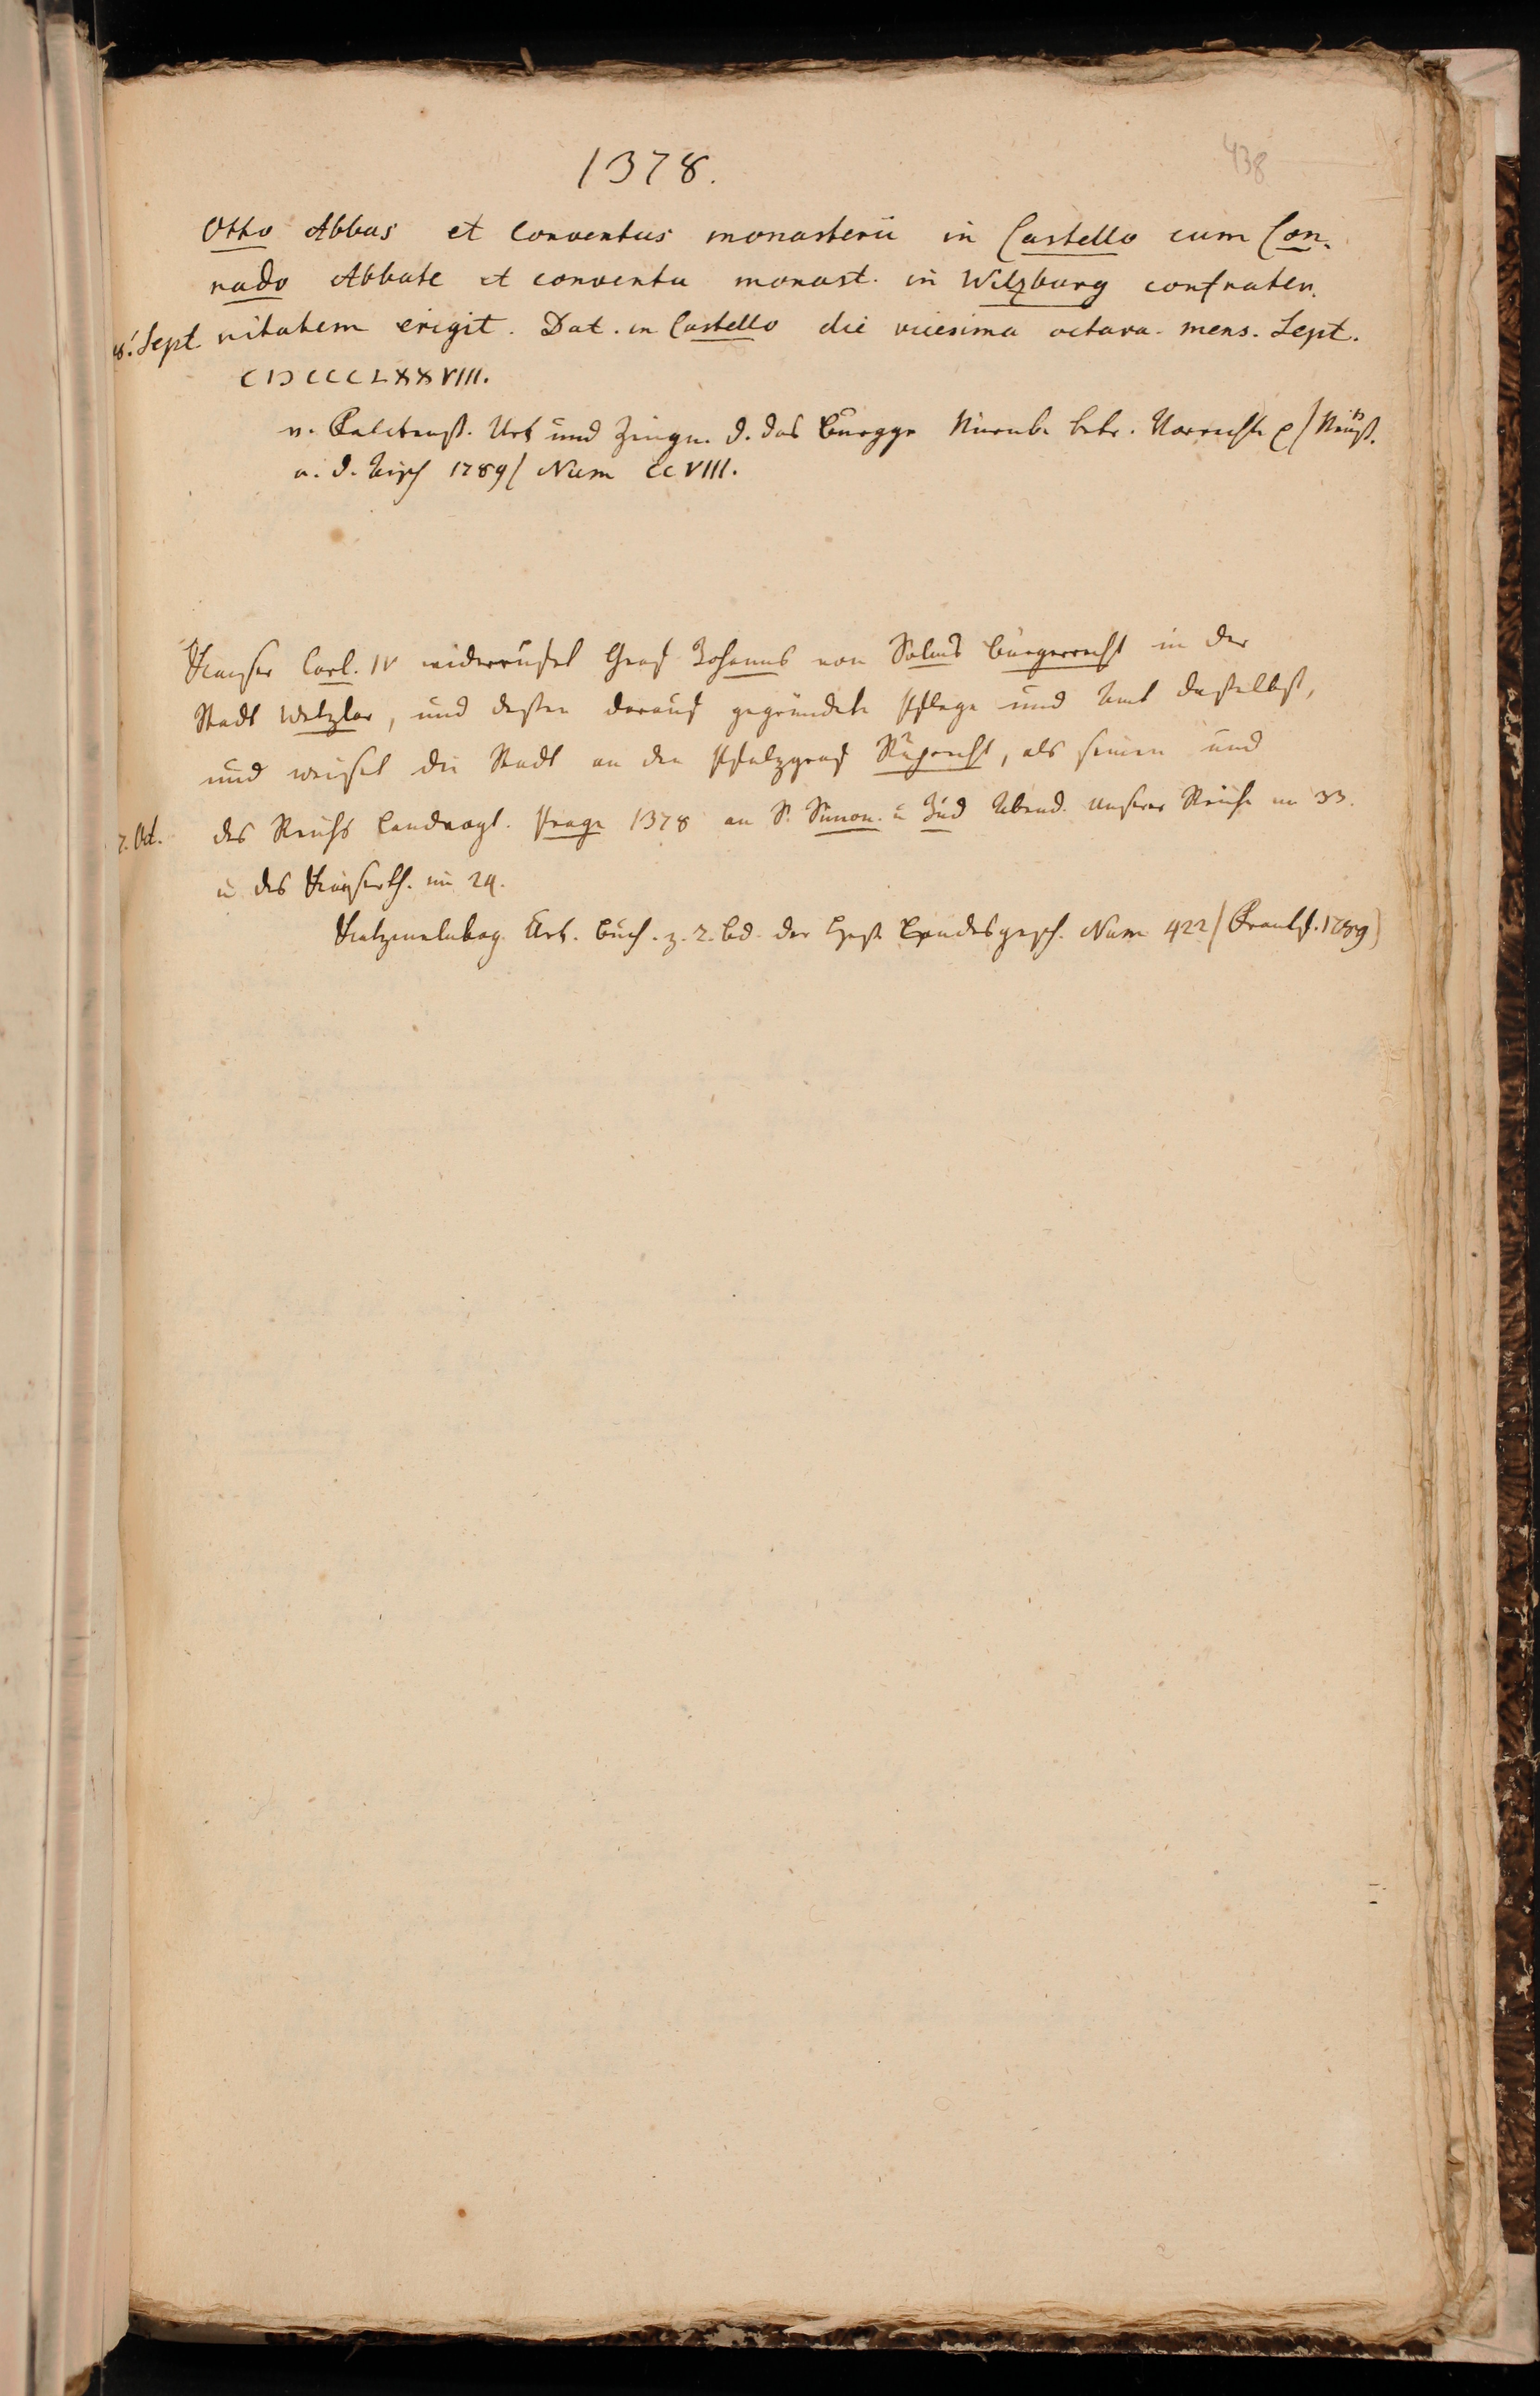 438
1378.
Otto Abbas et Conventus monasterii in Castello cum Con-
rado Abbate et conventu monast. in Wilzburg confrater.
Sept nitatem erigit. Dat. in Castello die vicesima octava mens. Sept.
CIƆCCCLXXVIII.
v. Falckenst. Urk und Zeugn. d. das Burggr Nürnb. betr.
1789/ Num CCVIII.
Kayser Carl. IV widerrufet Graf Johanns von Solms Bürgerrecht in der
Stadt Wetzlar, und dessen darauf gegründete Pflege und Amt daselbst,
und weiset die Stadt an den Pfalzgraf Ruprecht, als seinen und
7. Oct. des Reichs Landvogt. Prage 1378 an S. Simon. u Jud Abend. unserer Reiche im 33.
u des Kayserth. im 24.
Katzenelnbog. Urk. Buch. z. 2. Bd. der Hess. Landesgesch. Num 422 (Frankf. 1789)